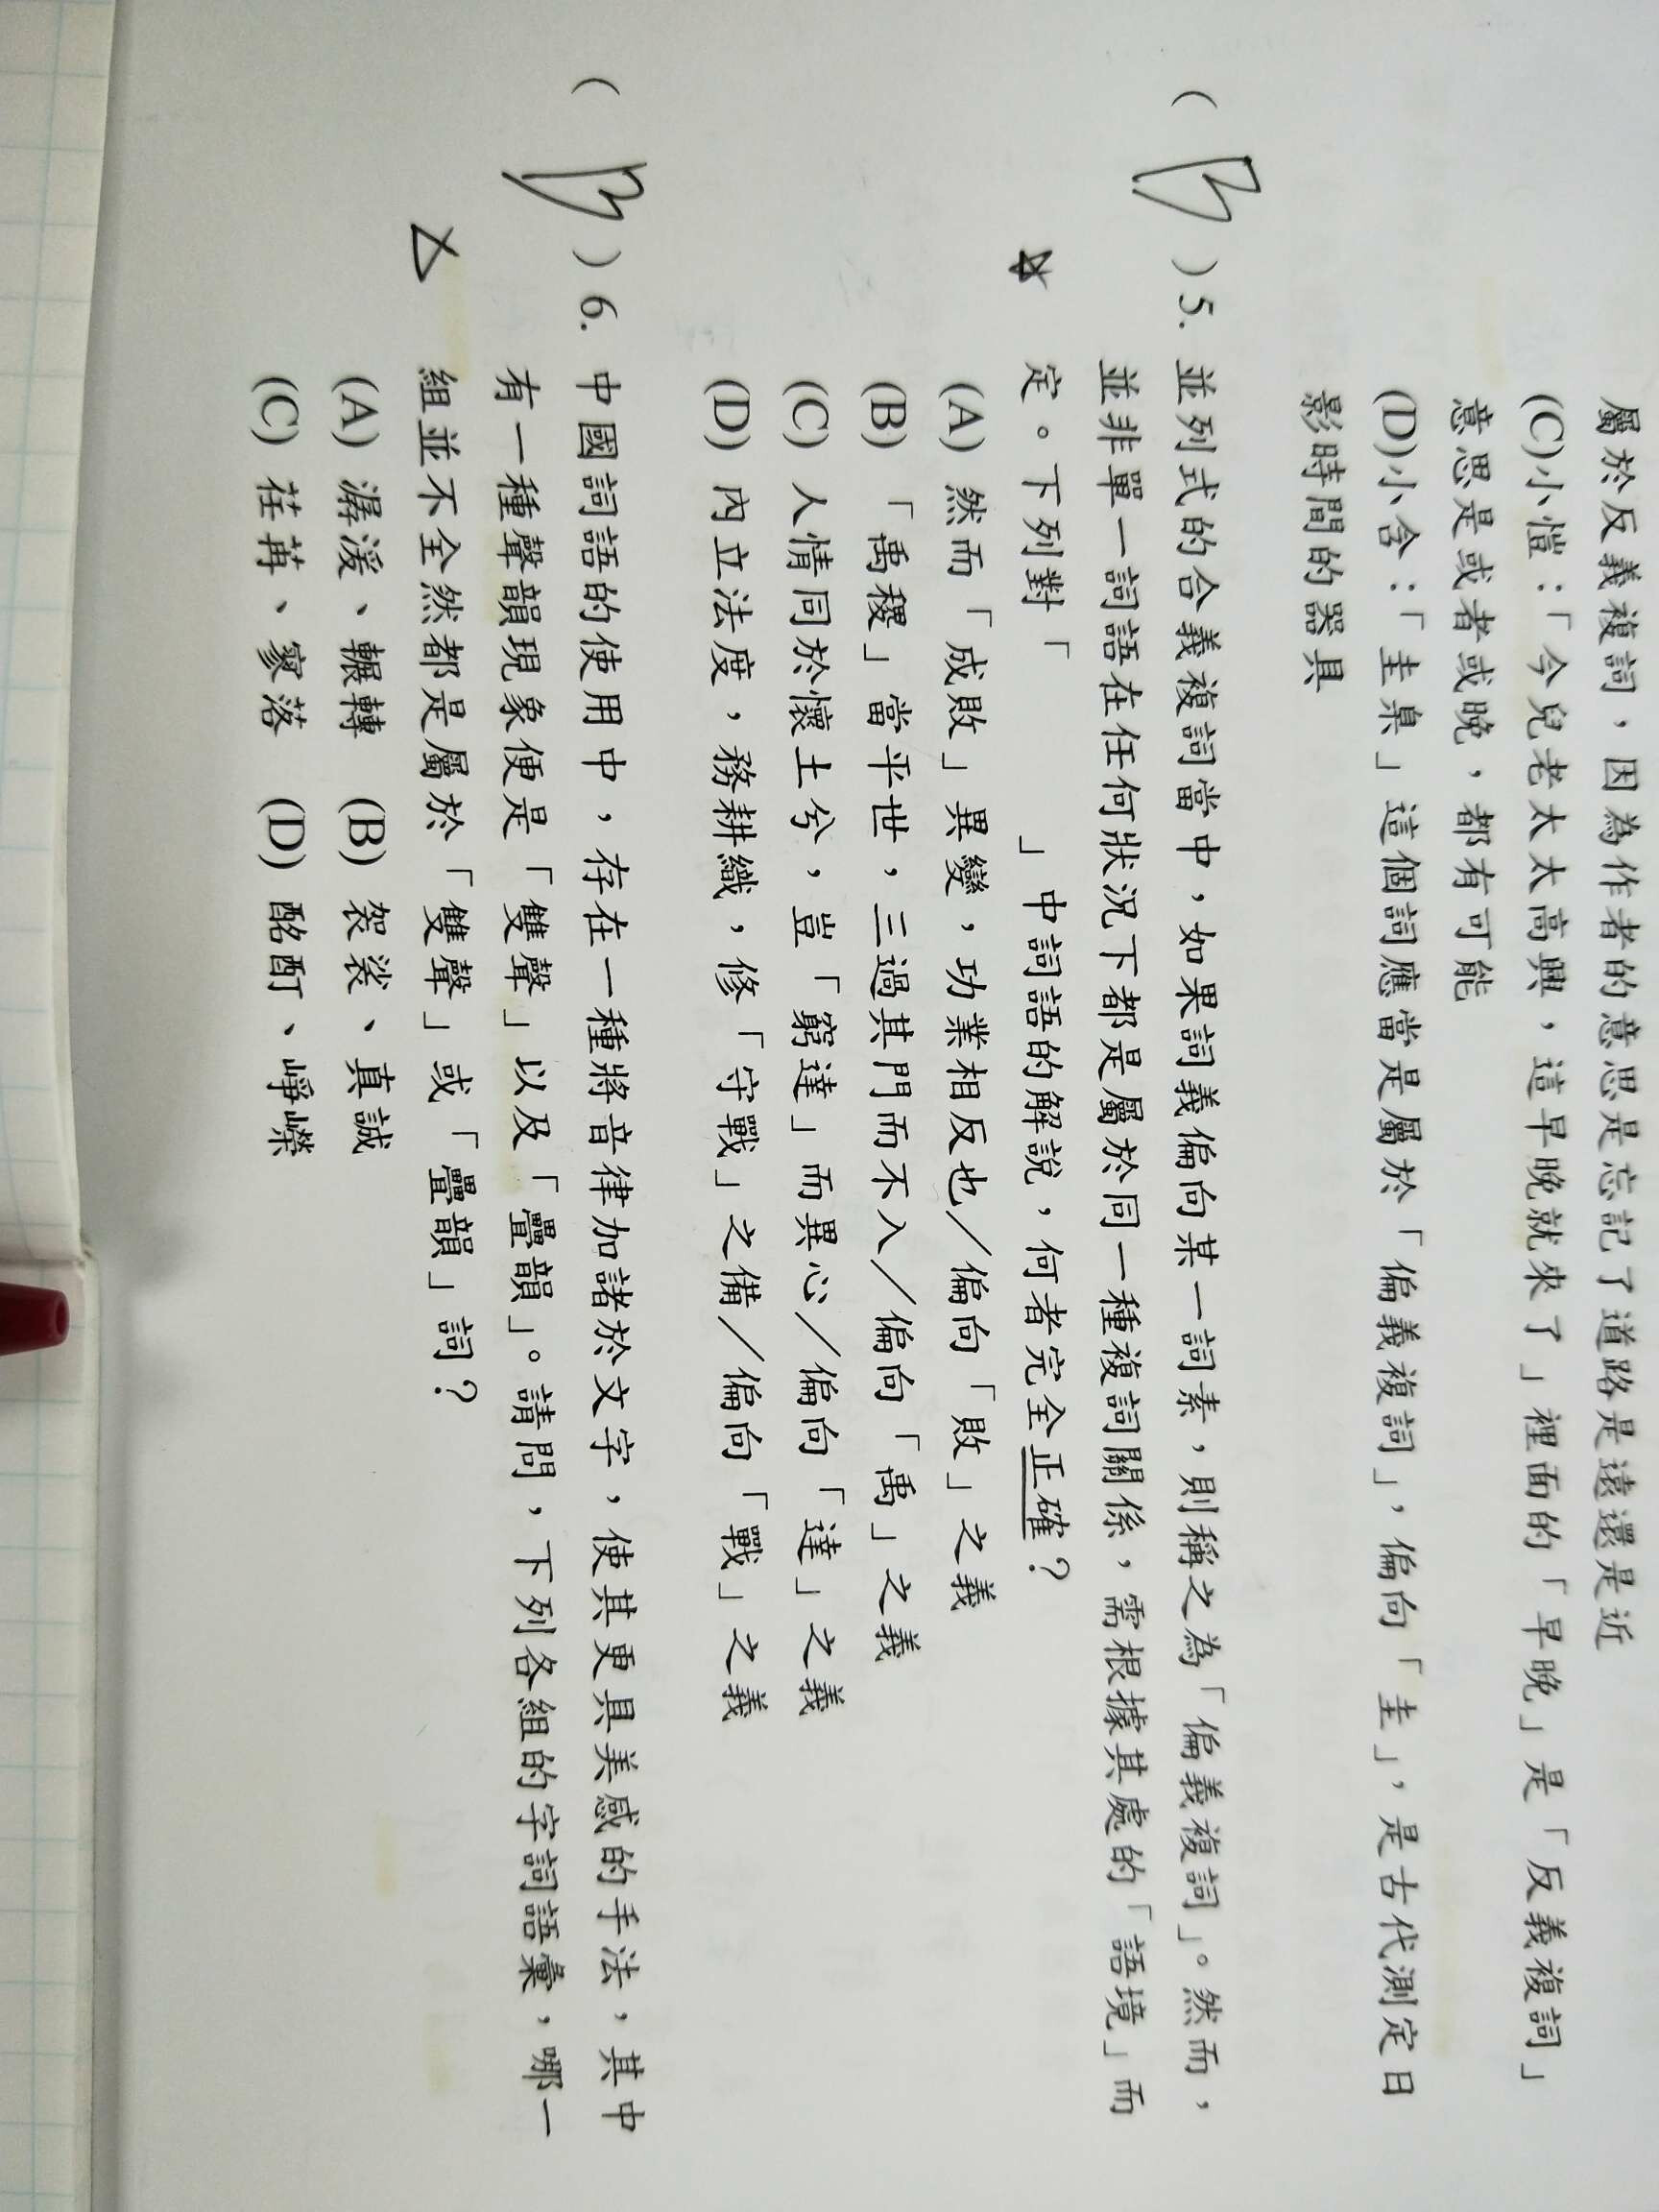 屬於反義複詞，因為作者的意思是忘記了道路是遠還是近
(C)小愷：「今兒老太太高興，這早晚就來了」裡面的「早晚」是「反義複詞」
意思是或者或晚，都有可能
(D)小含：「圭臬」這個詞應當是屬於「偏義複詞」，偏向「圭」，是古代測定日
影時間的器具
( B )5. 並列式的合義複詞當中，如果詞義偏向某一詞素，則稱之為「偏義複詞」。然而，
並非單一詞語在任何狀況下都是屬於同一種複詞關係，需根據其處的「語境」而
定。下列對「 」中詞語的解說，何者完全正確？
(A) 然而「成敗」異變，功業相反也／偏向「敗」之義
(B) 「禹稷」當平世，三過其門而不入／偏向「禹」之義
(C) 人情同於懷土兮，豈「窮達」而異心／偏向「達」之義
(D) 內立法度，務耕織，修「守戰」之備／偏向「戰」之義
( B )6. 中國詞語的使用中，存在一種將音律加諸於文字，使其更具美感的手法，其中
有一種聲韻現象便是「雙聲」以及「疊韻」。請問，下列各組的字詞語彙，哪一
組並不全然都是屬於「雙聲」或「疊韻」詞？
(A) 潺湲、輾轉 (B) 袈裟、真誠
(C) 荏苒、寥落 (D) 酩酊、崢嶸